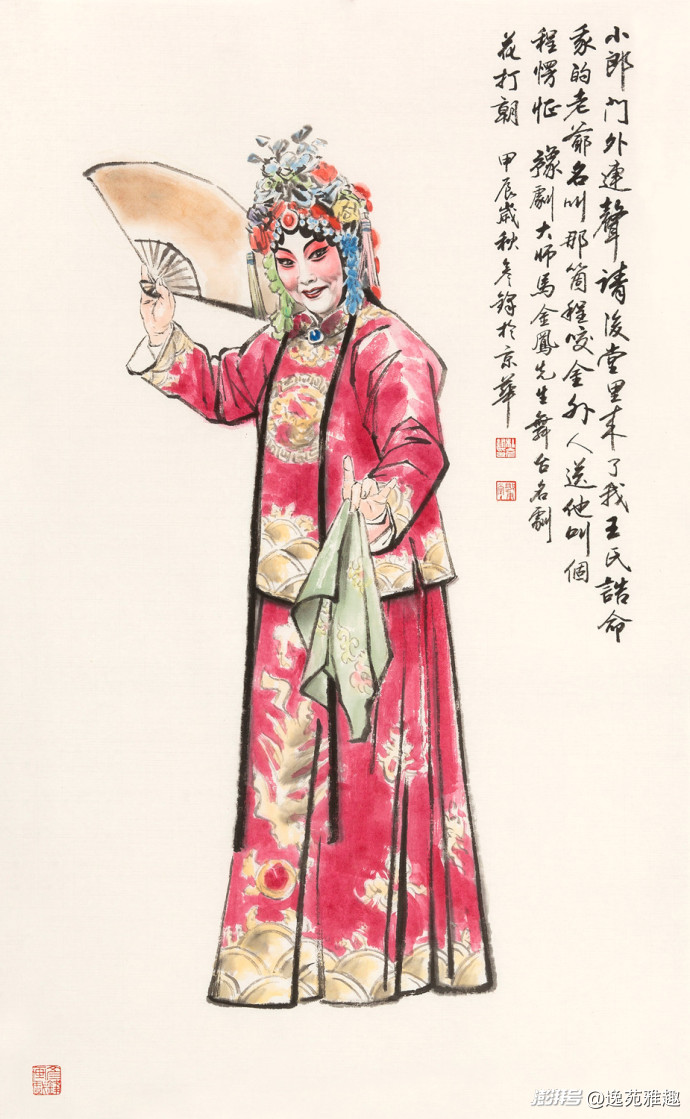 小郎门外連聲请後堂里来了我王氏誥命
我的老爺名叫那箇程咬金外人送他叫個
程愣怔 豫劇大师馬金鳳先生舞台名劇
花打朝 甲辰歲秋彦鋒於京華
澎湃号 @逸苑雅趣